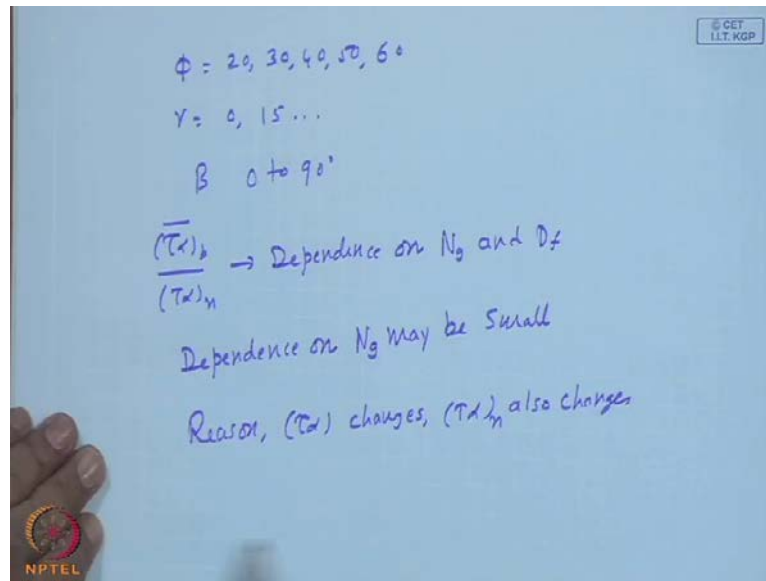 © CET
I.I.T. KGP
Φ = 20, 30, 40, 50, 60
γ = 0, 15...
β 0 to 90°
(τα)̅b / (τα)n → Dependence on Ng and Df
Dependence on Ng may be small
Reason, (τα) changes, (τα)n also changes
NPTEL